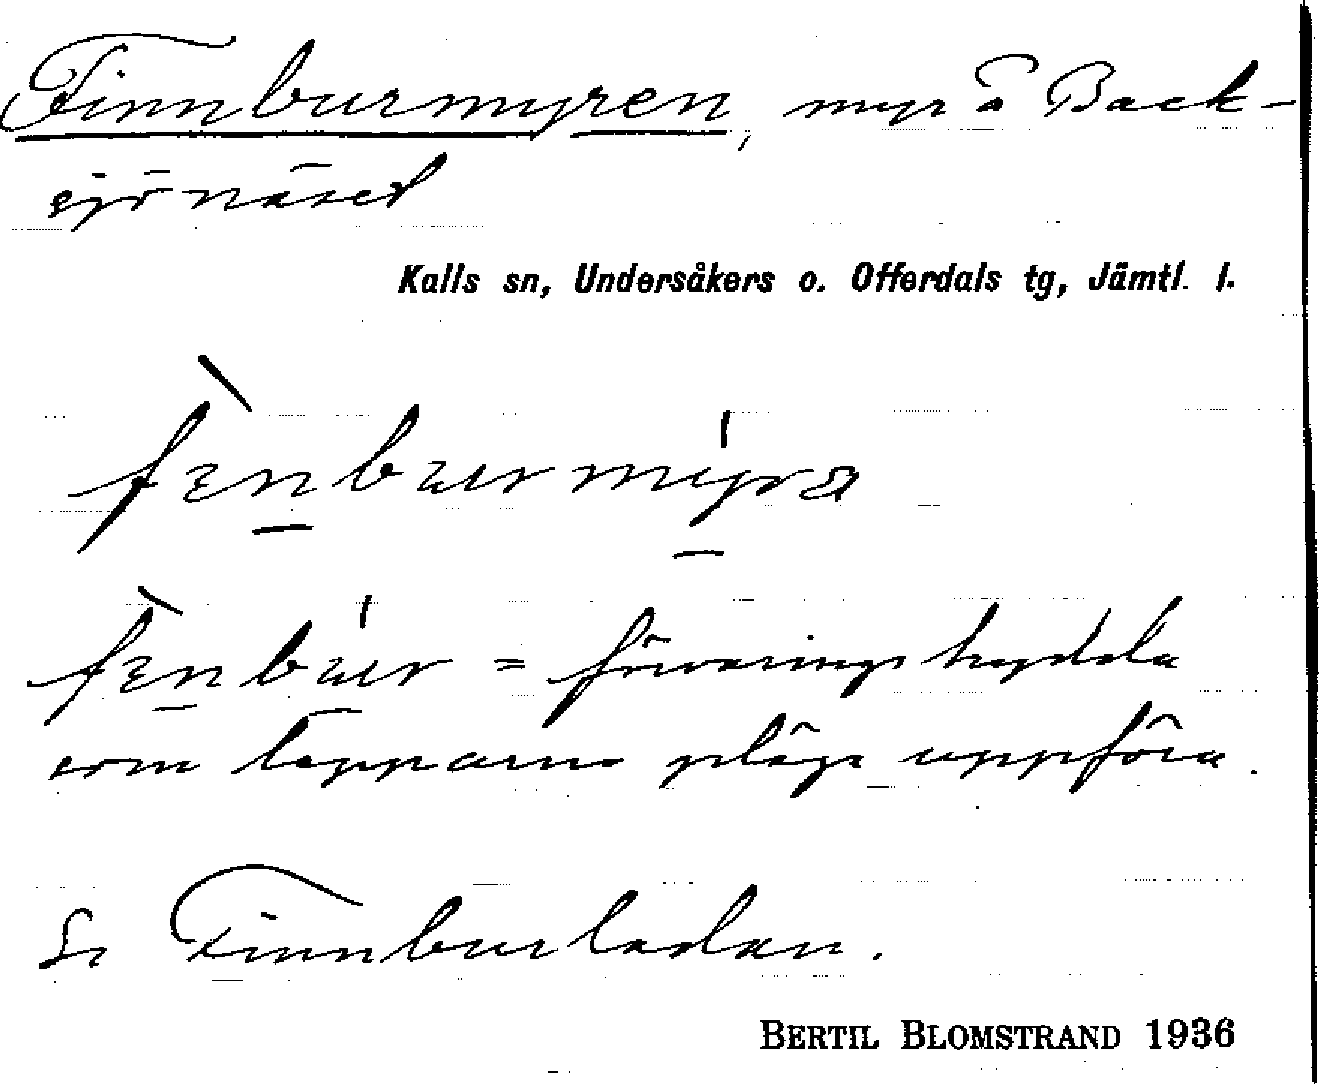 Finnburmyren, myr å Back-
sjönäset
Kalls sn, Undersåkers o. Offerdals tg, Jämtl. l.
fɪnburmyra
fɪnbur = förvaringshydda
som lapparna pläga uppföra.
Se Finnburladan.
BERTIL BLOMSTRAND 1936